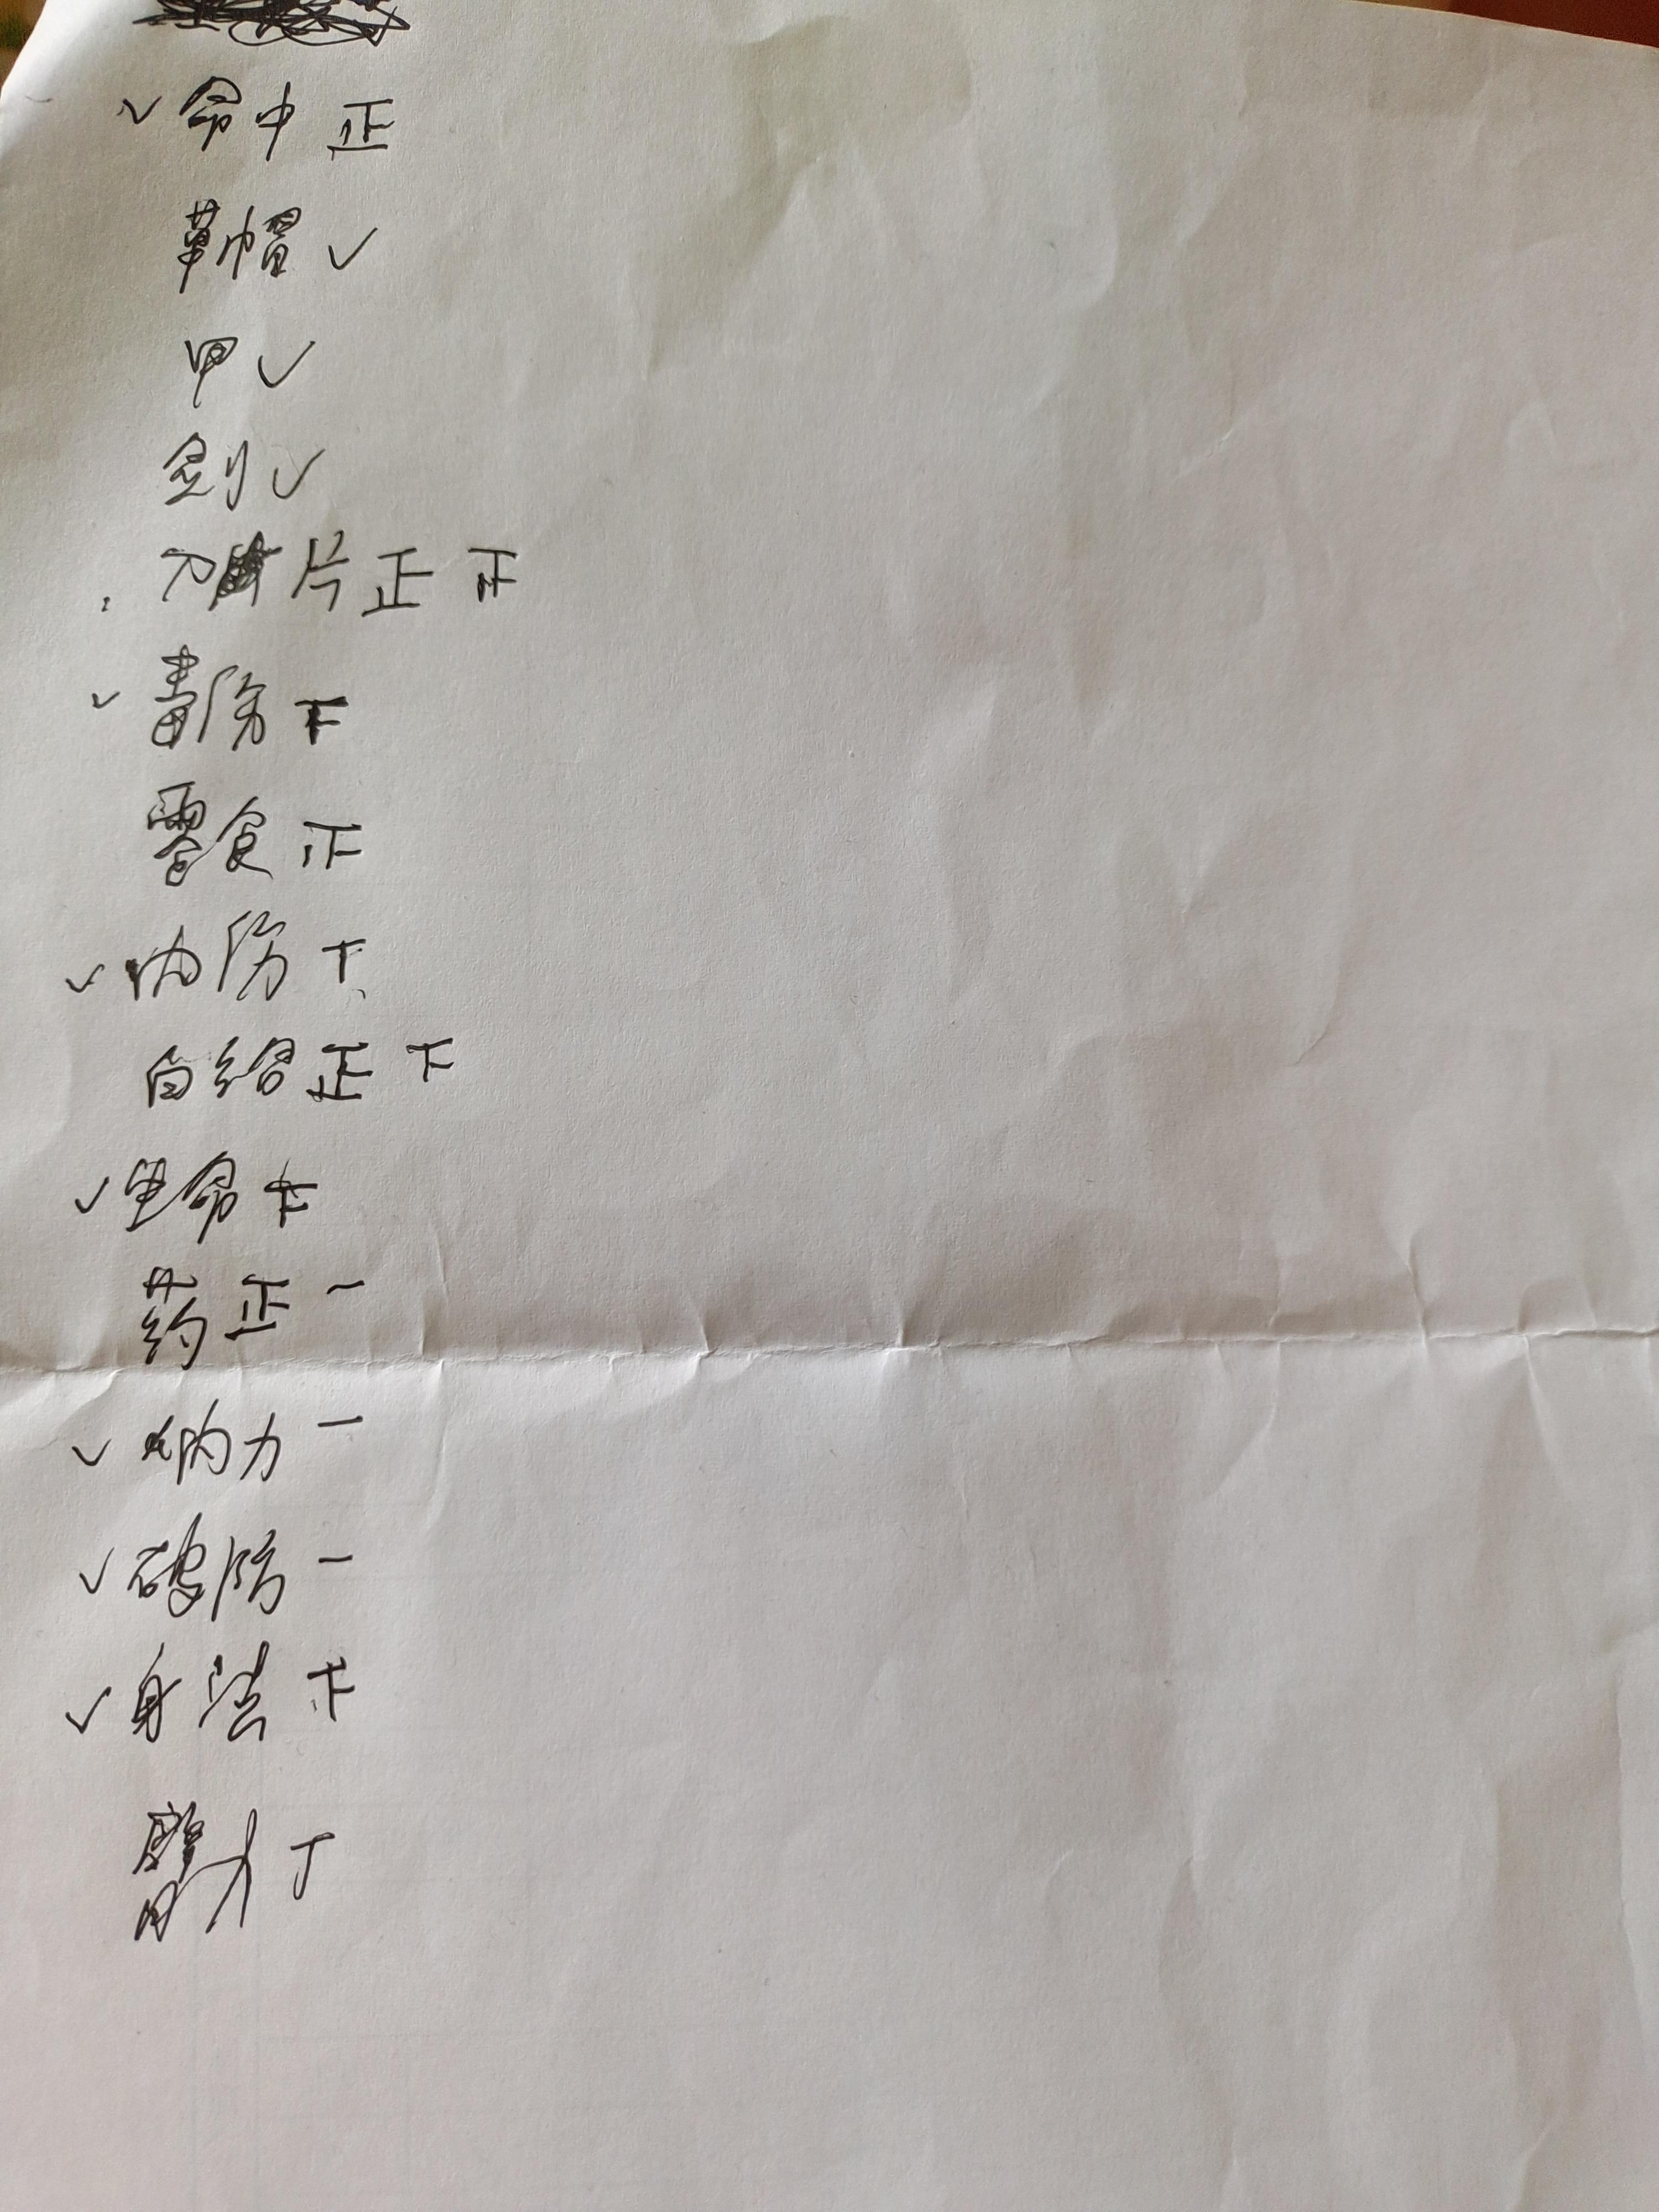 ✓ 命中 正
革帽 ✓
甲 ✓
剑 ✓
刀片 正 正
✓ 毒伤 下
零食 正
✓ 内伤 下
白给 正 下
✓ 生命
药 正 一
✓ 内力 一
✓ 破防 一
✓ 身法 下
臂 丁